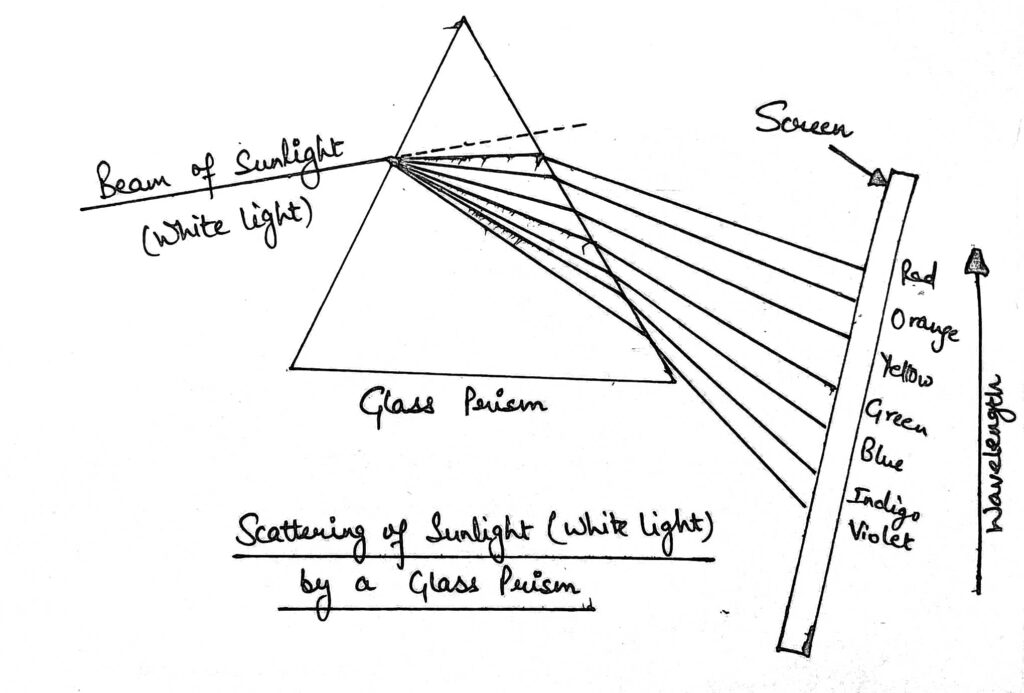 Screen
Beam of Sunlight
(White light)
Red
Orange
Yellow
Green
Blue
Indigo
Violet
Wavelength
Glass Prism
Scattering of Sunlight (White light)
by a Glass Prism